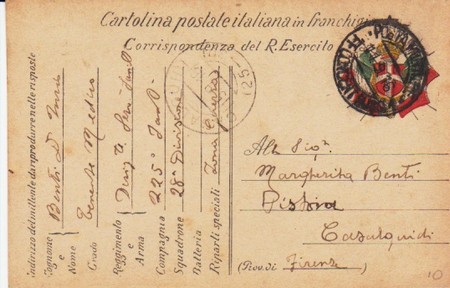 Cartolina postale italiana in franchigia
Corrispondenza del R. Esercito
Indirizzo del mittente da riprodurre nelle risposte
Cognome e Nome Benti D.
Grado Tenente Medico
Reggimento e Arma
Compagnia 225ª
Squadrone 28ª Divisione
Batteria
Riparti speciali Zona Guerra
(25)
All. Sigª
Margherita Benti
Pistoia
Casalguidi
(Prov. di Firenze)
10